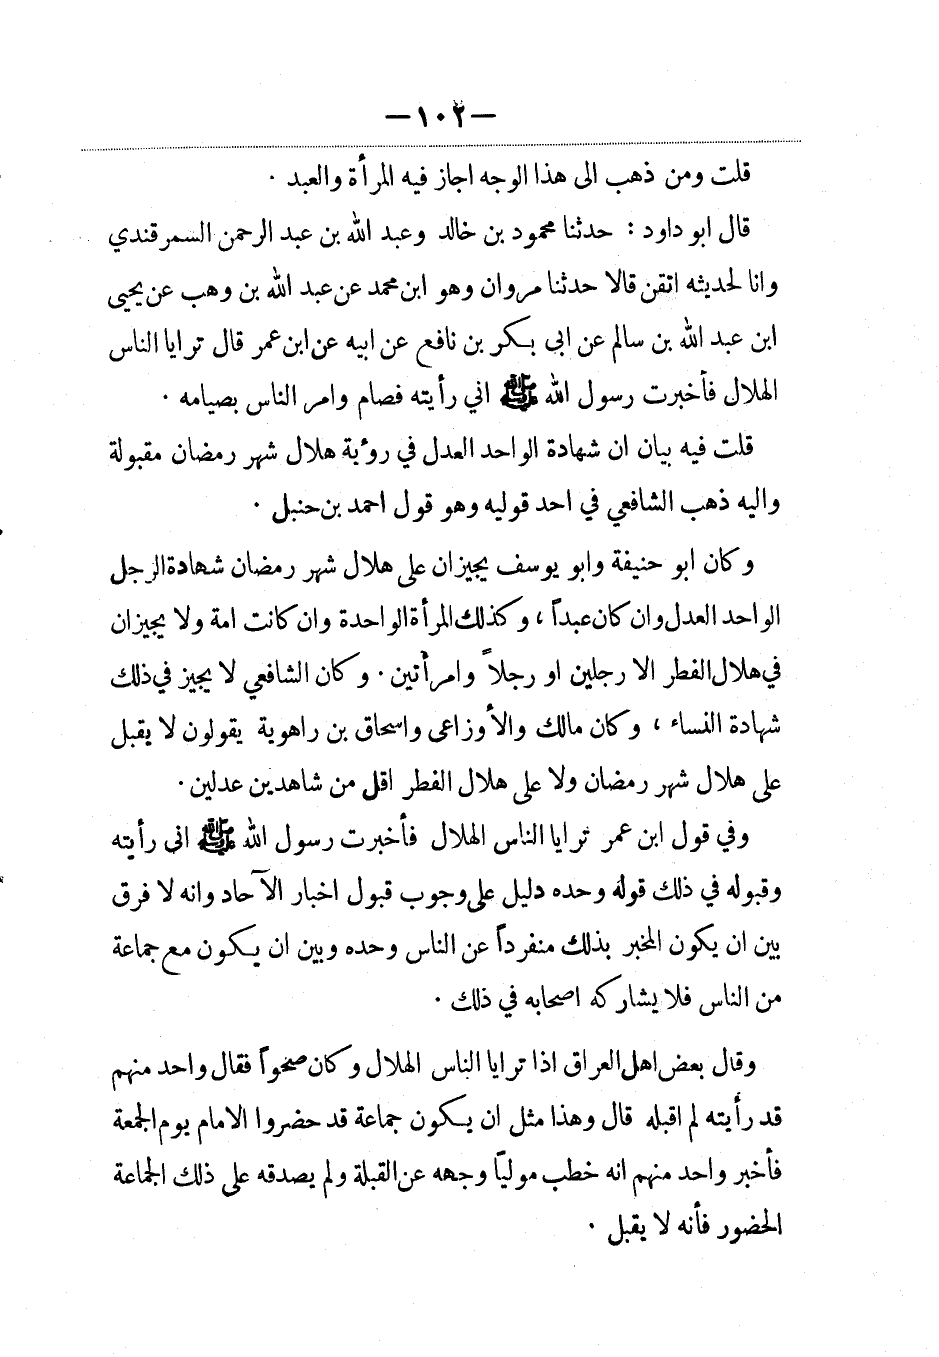 — ١٠٢ —
قلت ومن ذهب الى هذا الوجه اجاز فيه المرأة والعبد .
قال ابو داود : حدثنا محمود بن خالد وعبد الله بن عبد الرحمن السمرقندي
وانا لحديثه اتقن قالا حدثنا مروان وهو ابن محمد عن عبد الله بن وهب عن يحيى
ابن عبد الله بن سالم عن ابى بكر بن نافع عن ابيه عن ابن عمر قال ترايا الناس
الهلال فأخبرت رسول الله ﷺ اني رأيته فصام وامر الناس بصيامه .
قلت فيه بيان ان شهادة الواحد العدل في رؤية هلال شهر رمضان مقبولة
واليه ذهب الشافعي في احد قوليه وهو قول احمد بن حنبل .
وكان ابو حنيفة وابو يوسف يجيزان على هلال شهر رمضان شهادة الرجل
الواحد العدل وان كان عبداً ، وكذلك المرأة الواحدة وان كانت امة ولا يجيزان
في هلال الفطر الا رجلين او رجلاً وامرأتين . وكان الشافعي لا يجيز في ذلك
شهادة النساء ، وكان مالك والأوزاعى واسحاق بن راهوية يقولون لا يقبل
على هلال شهر رمضان ولا على هلال الفطر اقل من شاهدين عدلين .
وفي قول ابن عمر ترايا الناس الهلال فأخبرت رسول الله ﷺ انى رأيته
وقبوله في ذلك قوله وحده دليل على وجوب قبول اخبار الآحاد وانه لا فرق
بين ان يكون المخبر بذلك منفرداً عن الناس وحده وبين ان يكون مع جماعة
من الناس فلا يشاركه اصحابه في ذلك .
وقال بعض اهل العراق اذا ترايا الناس الهلال وكان صحواً فقال واحد منهم
قد رأيته لم اقبله قال وهذا مثل ان يكون جماعة قد حضروا الامام يوم الجمعة
فأخبر واحد منهم انه خطب مولياً وجهه عن القبلة ولم يصدقه على ذلك الجماعة
الحضور فأنه لا يقبل .